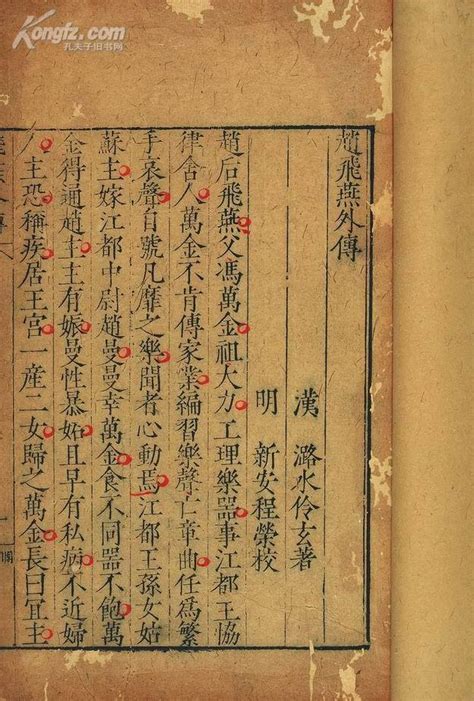 Kongfz.com
孔夫子旧书网
趙飛燕外傳
漢 潞水伶玄著
明 新安程榮校
趙后飛燕父馮萬金祖大力工理樂器事江都王協
律舍人萬金不肯傳家業編習樂聲亡章曲任爲繁
手哀聲自號凡靡之樂聞者心動焉江都王孫女姑
蘇主嫁江都中尉趙曼曼幸萬金食不同器不飽萬
金得通趙主主有娠曼性暴妬且早有私病不近婦
人主恐稱疾居王宮一産二女歸之萬金長曰宜主